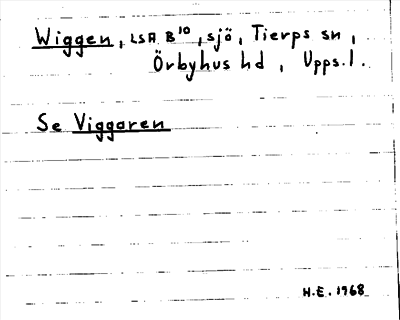 Wiggen, LSA B10, sjö, Tierps sn,
Örbyhus hd, Upps.l.
Se Viggaren
H.E. 1968